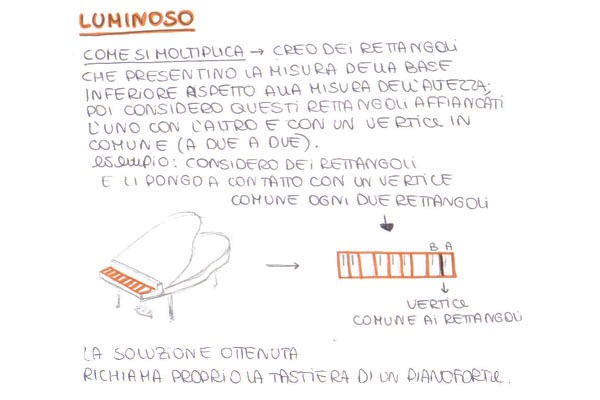 LUMINOSO
COME SI MOLTIPLICA → CREO DEI RETTANGOLI
CHE PRESENTINO LA MISURA DELLA BASE
INFERIORE RISPETTO ALLA MISURA DELL'ALTEZZA;
POI CONSIDERO QUESTI RETTANGOLI AFFIANCATI
L'UNO CON L'ALTRO E CON UN VERTICE IN
COMUNE (A DUE A DUE).
esempio: CONSIDERO DEI RETTANGOLI
E LI PONGO A CONTATTO CON UN VERTICE
COMUNE OGNI DUE RETTANGOLI
B A
VERTICE
COMUNE AI RETTANGOLI
LA SOLUZIONE OTTENUTA
RICHIAMA PROPRIO LA TASTIERA DI UN PIANOFORTE.